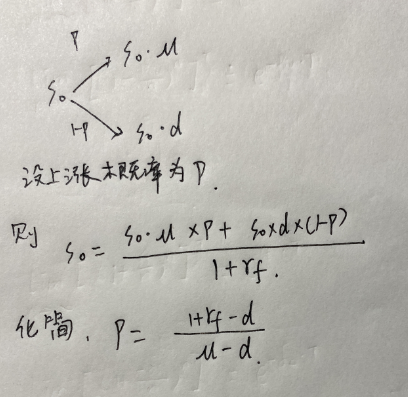 P
S₀·u
S₀
1-P
S₀·d
设上涨概率为P.
则 S₀ = (S₀·u×P + S₀×d×(1-P)) / (1+rf).
化简, P = (1+rf-d) / (u-d).